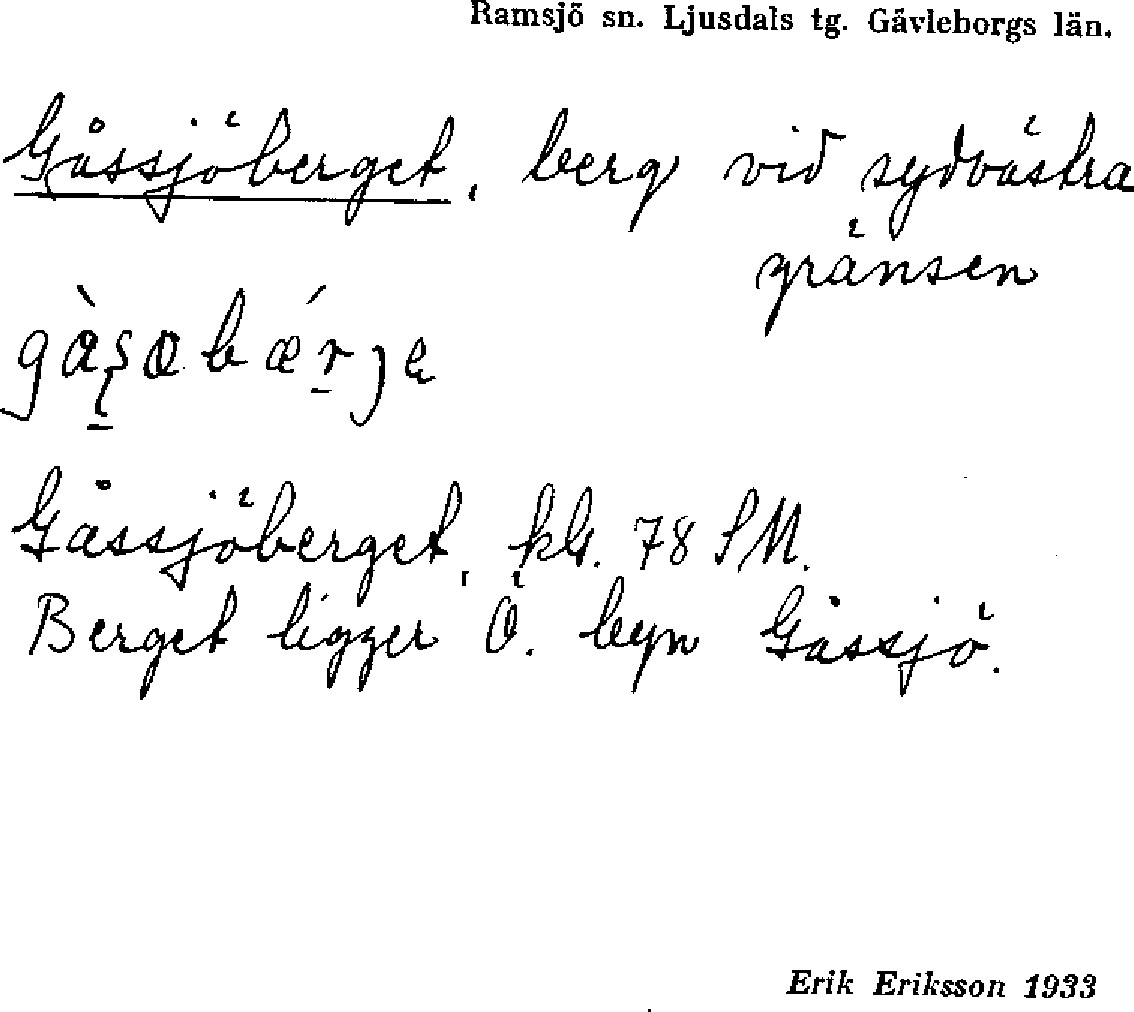 Ramsjö sn. Ljusdals tg. Gävleborgs län.
Gåssjöberget, berg vid sydvästra
gränsen
Gåssjöberget, kbl. 78 SM.
Berget ligger Ö. byn Gåssjö.
Erik Eriksson 1933